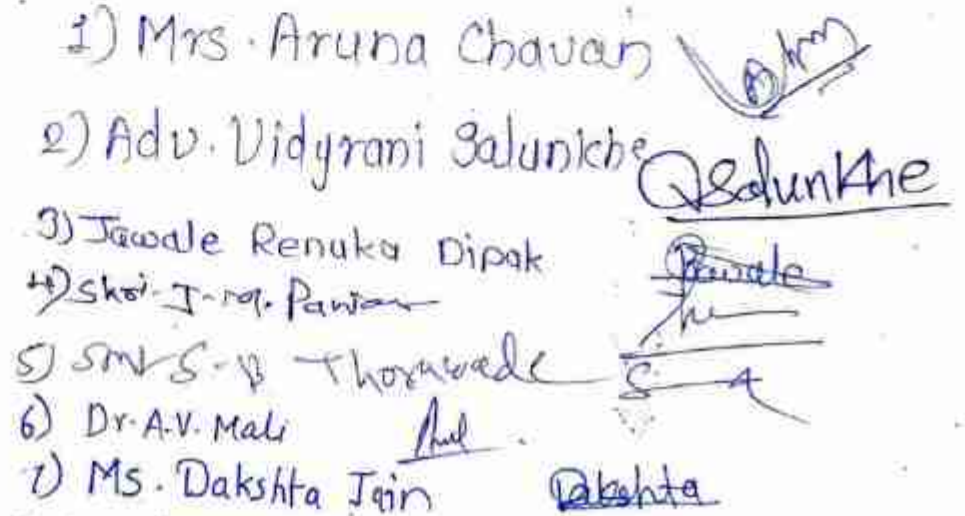 1) Mrs. Aruna Chavan
2) Adv. Vidyrani Salunkhe Salunkhe
3) Jawale Renuka Dipak
4) Shri. J. M. Pawar
5) Smt S. B Thoruwade
6) Dr. A.V. Mali
7) Ms. Dakshta Jain Dakshta